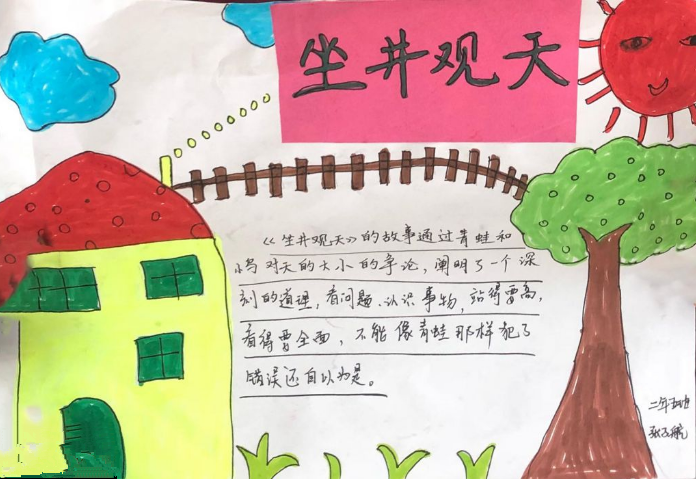 坐井观天
《坐井观天》的故事通过青蛙和
小鸟对天的大小的争论，阐明了一个深
刻的道理，看问题、认识事物，站得要高，
看得要全面，不能像青蛙那样犯了
错误还自以为是。
二年五班